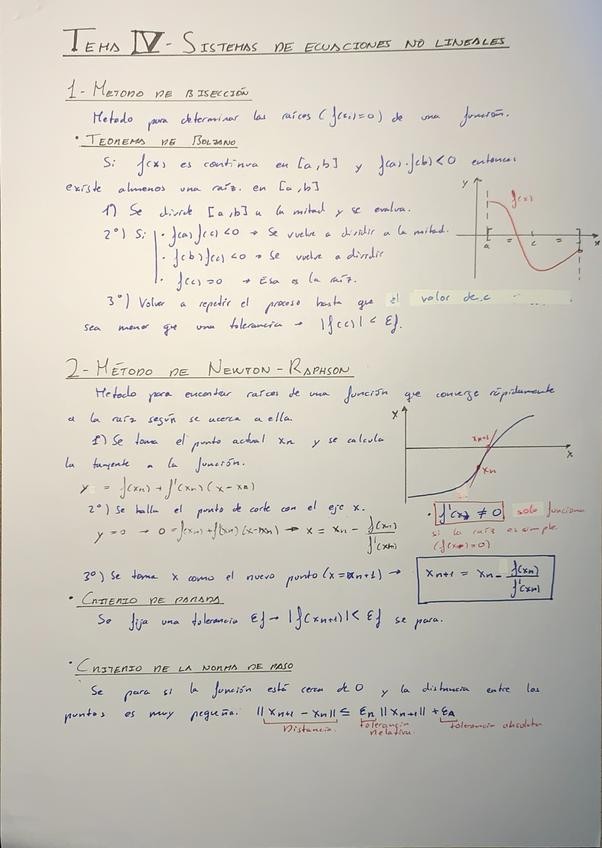 TEMA IV - SISTEMAS DE ECUACIONES NO LINEALES
1- METODO DE BISECCIÓN
Metodo para determinar las raíces (f(x)=0) de una función.
· TEOREMA DE BOLZANO
Si f(x) es continua en [a,b] y f(a)·f(b)<0 entonces
existe almenos una raíz en [a,b]
1º) Se divide [a,b] a la mitad y se evalua.
2º) Si · f(a)f(c)<0 → Se vuelve a dividir a la mitad.
· f(b)f(c)<0 → Se vuelve a dividir
· f(c)=0 → Esa es la raíz.
3º) Volver a repetir el proceso hasta que el valor de c
sea menor que una tolerancia → |f(c)| < Ef.
y
f(x)
a = c = b
x
2- MÉTODO DE NEWTON-RAPHSON
Metodo para encontar raíces de una función que converge rápidamente
a la raíz según se acerca a ella.
1º) Se toma el punto actual xn y se calcula
la tangente a la función.
y = f(xn) + f'(xn)(x-xn)
2º) Se halla el punto de corte con el eje x.
y=0 → 0=f(xn)+f'(xn)(x-xn) → x = xn - f(xn)/f'(xn)
x
xn+1
xn
x
· f'(x) ≠ 0 solo funciona
si la raíz es simple
(f(x)=0)
3º) Se toma x como el nuevo punto (x=xn+1) → xn+1 = xn - f(xn)/f'(xn)
· CRITERIO DE PARADA
Se fija una tolerancia Ef → |f(xn+1)| < Ef se para.
· CRITERIO DE LA NORMA DE PASO
Se para si la función está cerca de 0 y la distancia entre los
puntos es muy pequeña. ||xn+1 - xn|| ≤ ER ||xn+1|| + EA
Distancia. tolerancia relativa. tolerancia absoluta